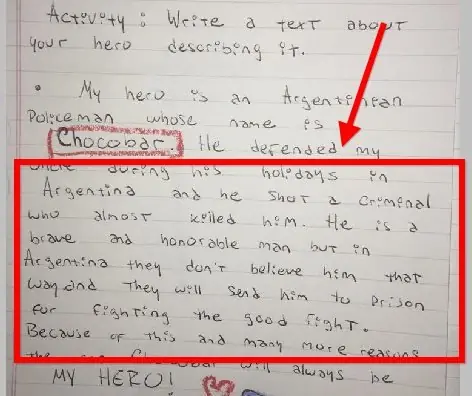 Activity: Write a text about
your hero describing it.
• My hero is an Argentinian
Policeman whose name is
Chocobar. He defended my
uncle during his holidays in
Argentina and he shot a criminal
who almost killed him. He is a
brave and honorable man but in
Argentina they don't believe him that
way and They will send him to prison
for fighting the good fight.
Because of this and many more reasons
Chocobar will always be
MY HERO!